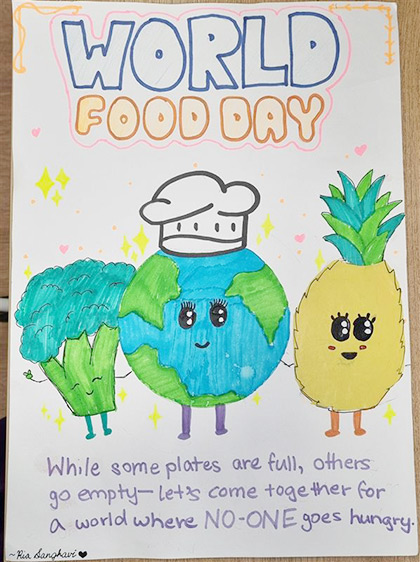 WORLD
FOOD DAY
While some plates are full, others
go empty—let's come together for
a world where NO-ONE goes hungry.
~Ria Sanghavi